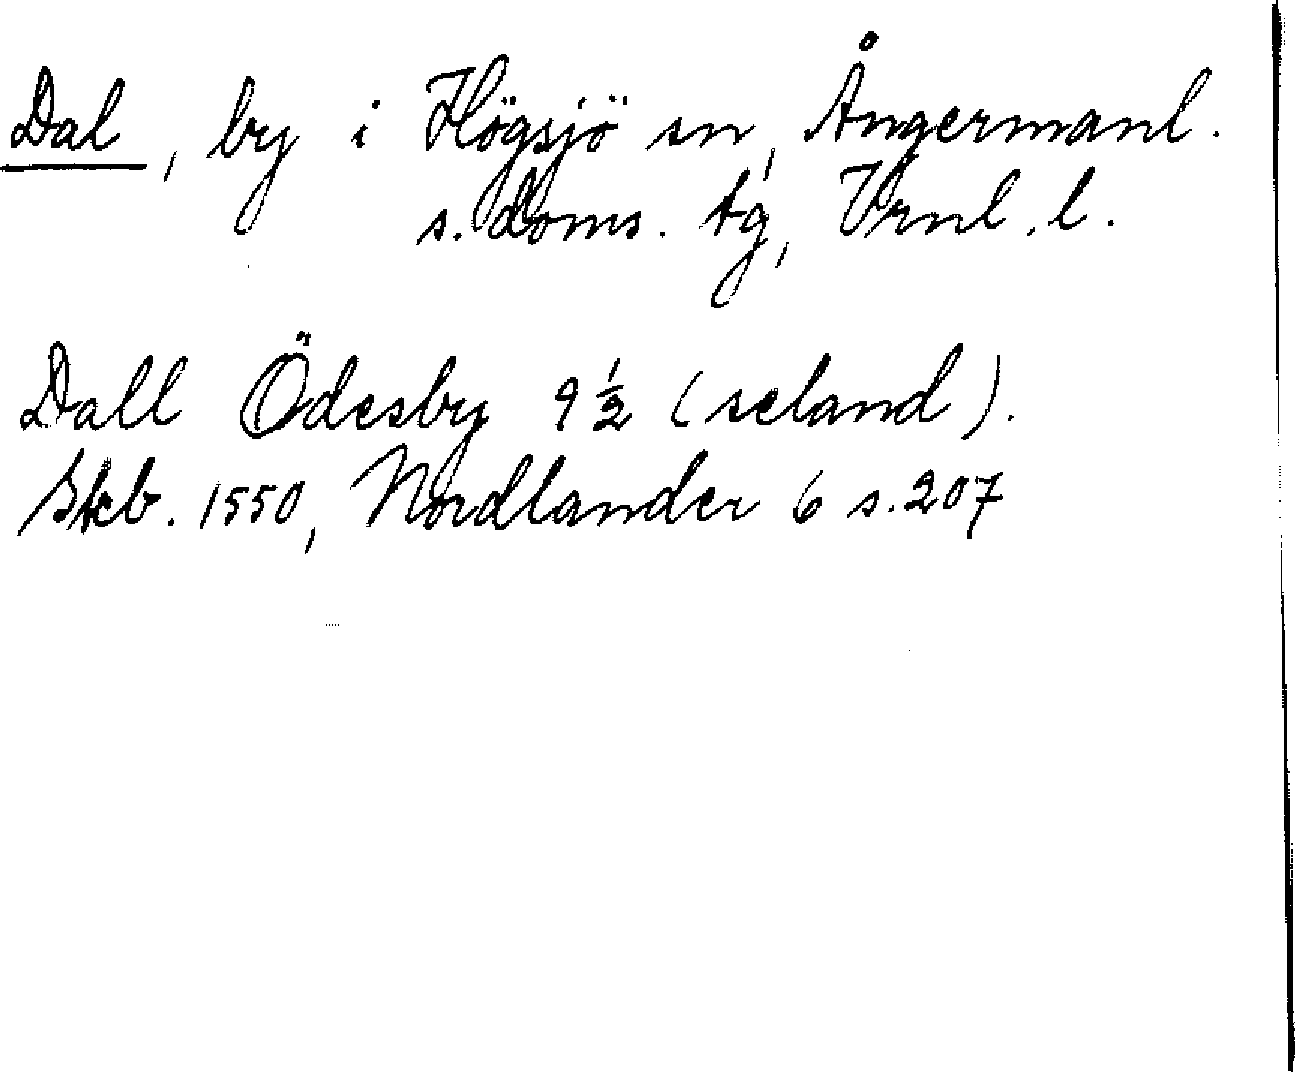 Dal, by i Högsjö sn, Ångermanl.
s. doms. tg, Vrnl. l.
Dall Ödesby 9 ½ (seland).
Skb. 1550, Nordlander 6 s. 207